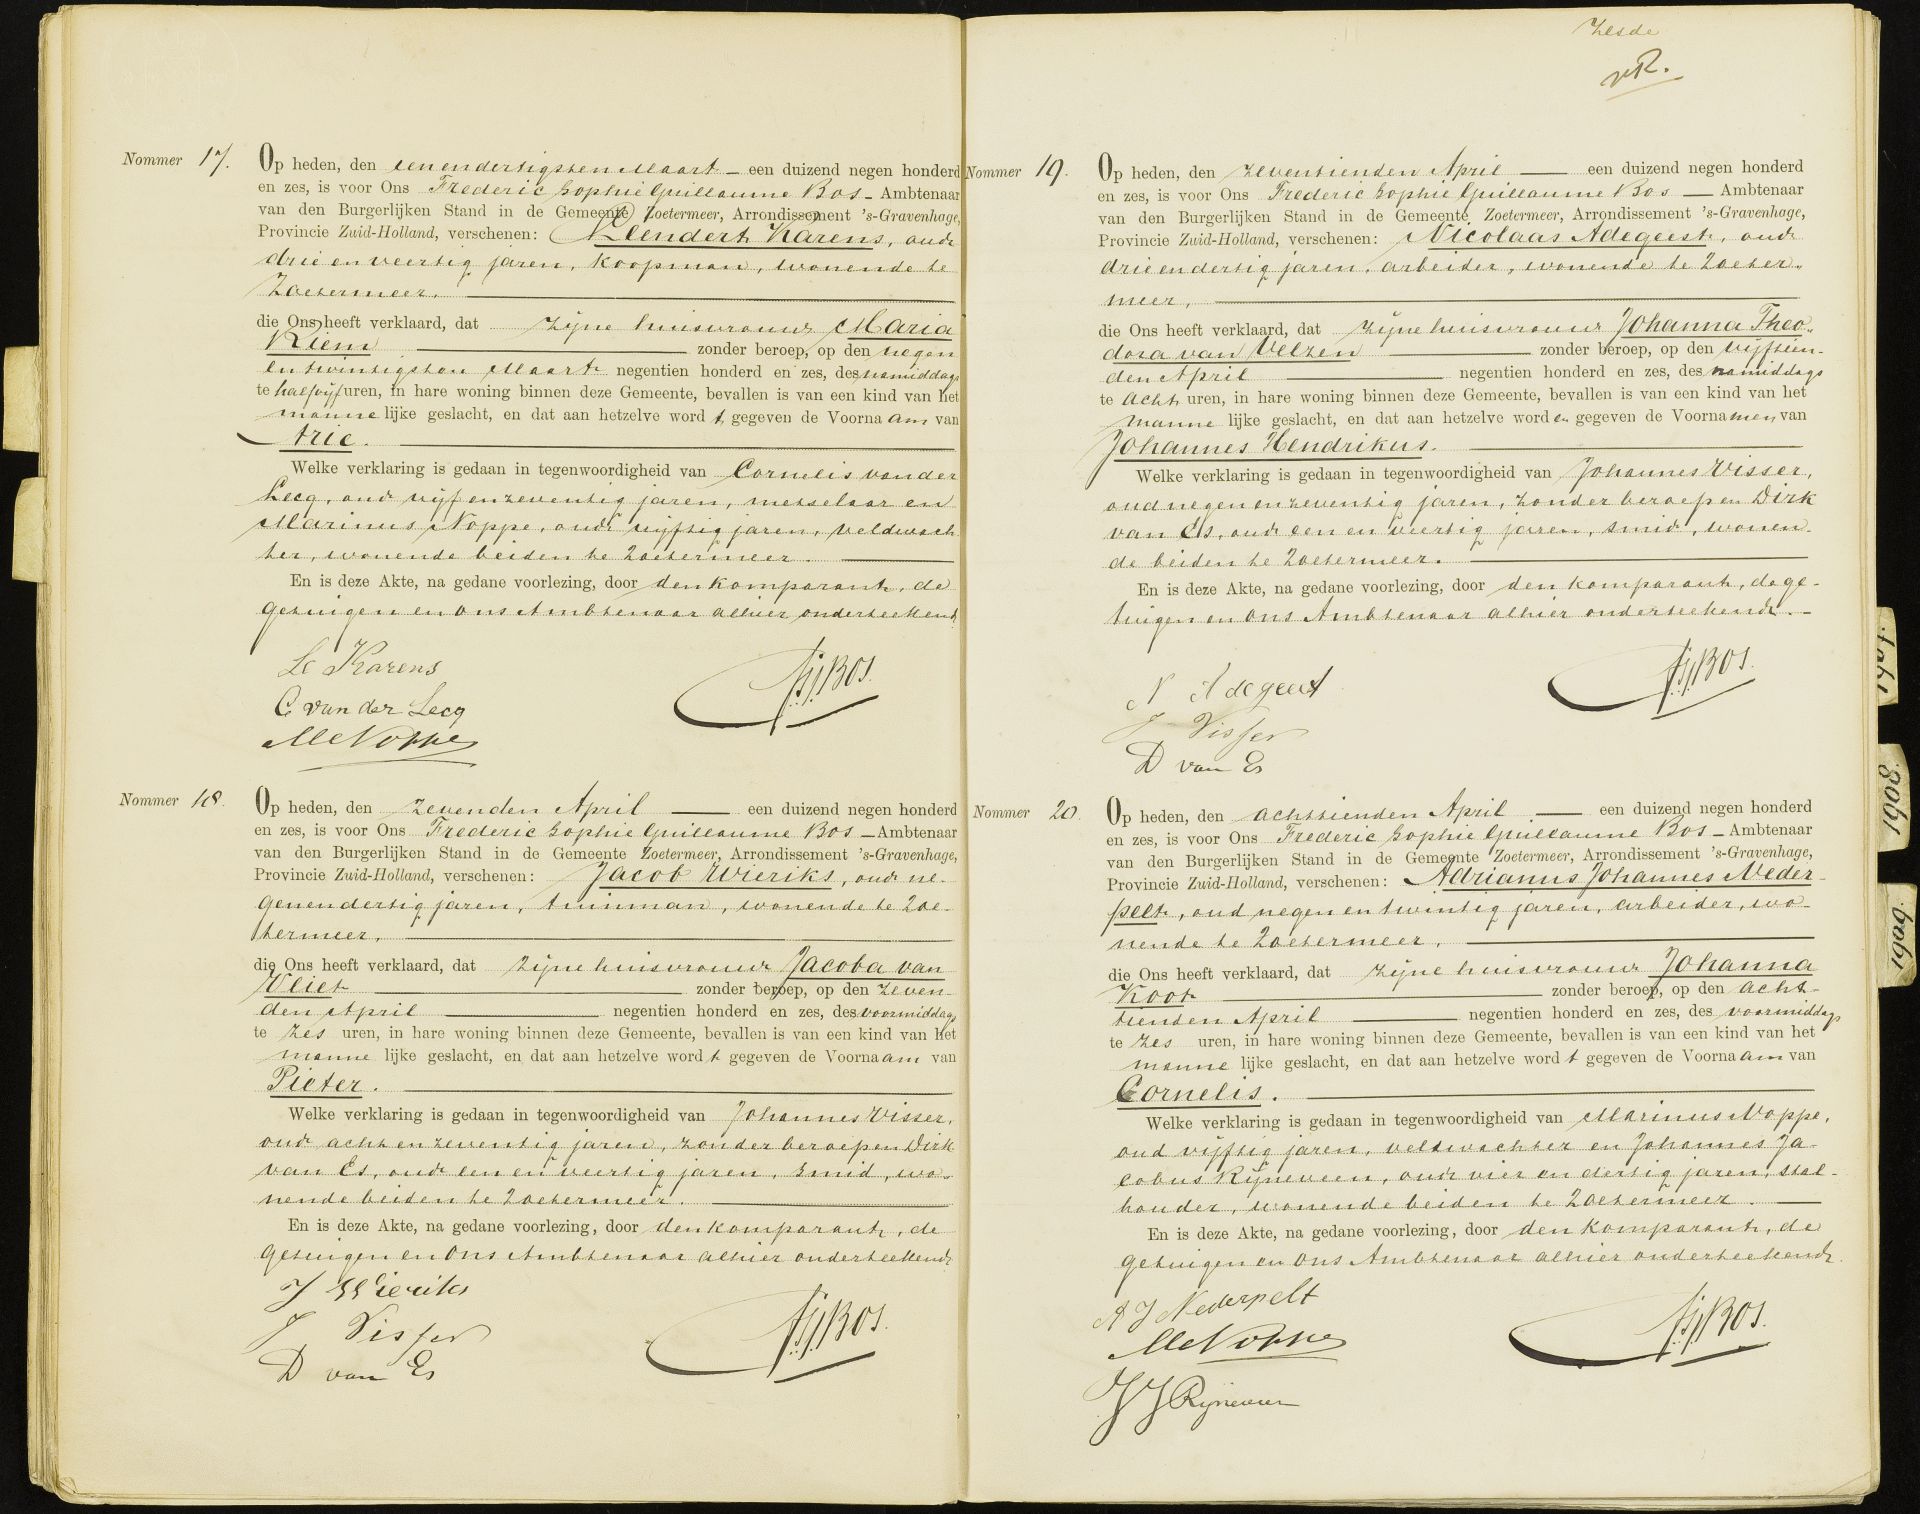 Nommer 17. Op heden, den eenendertigsten Maart een duizend negen honderd
en zes, is voor Ons Frederic Sophie Guillaume Bos Ambtenaar
van den Burgerlijken Stand in de Gemeente Zoetermeer, Arrondissement 's-Gravenhage,
Provincie Zuid-Holland, verschenen: Leendert Karens, oud
drie en veertig jaren, koopman, wonende te
Zoetermeer,
die Ons heeft verklaard, dat zijne huisvrouw Maria
Riem zonder beroep, op den negen
en twintigsten Maart negentien honderd en zes, des namiddags
te half vijf uren, in hare woning binnen deze Gemeente, bevallen is van een kind van het
mannelijke geslacht, en dat aan hetzelve wordt gegeven de Voornaam van
Arie.
Welke verklaring is gedaan in tegenwoordigheid van Cornelis van der
Lecq, oud vijf en zeventig jaren, metselaar en
Marinus Noppe, oud vijftig jaren, veldwach
ter, wonende beiden te Zoetermeer.
En is deze Akte, na gedane voorlezing, door den komparant, de
getuigen en ons Ambtenaar alhier onderteekend.
Le Karens
C van der Lecq
M Noppe
FSGBos.
Nommer 18. Op heden, den zevenden April een duizend negen honderd
en zes, is voor Ons Frederic Sophie Guillaume Bos Ambtenaar
van den Burgerlijken Stand in de Gemeente Zoetermeer, Arrondissement 's-Gravenhage,
Provincie Zuid-Holland, verschenen: Jacob Wieriks, oud ne-
genendertig jaren, tuinman, wonende te Zoe-
termeer,
die Ons heeft verklaard, dat zijne huisvrouw Jacoba van
Vliet zonder beroep, op den zeven-
den April negentien honderd en zes, des voormiddags
te zes uren, in hare woning binnen deze Gemeente, bevallen is van een kind van het
mannelijke geslacht, en dat aan hetzelve wordt gegeven de Voornaam van
Pieter.
Welke verklaring is gedaan in tegenwoordigheid van Johannes Visser,
oud acht en zeventig jaren, zonder beroep en Dirk
van Es, oud een en veertig jaren, smid, wo-
nende beiden te Zoetermeer.
En is deze Akte, na gedane voorlezing, door den komparant, de
getuigen en ons Ambtenaar alhier onderteekend.
J Wieriks
J Visser
D van Es
FSGBos.
Zesde
vR.
Nommer 19. Op heden, den zeventienden April een duizend negen honderd
en zes, is voor Ons Frederic Sophie Guillaume Bos Ambtenaar
van den Burgerlijken Stand in de Gemeente Zoetermeer, Arrondissement 's-Gravenhage,
Provincie Zuid-Holland, verschenen: Nicolaas Adegeest, oud
drie en dertig jaren, arbeider, wonende te Zoeter-
meer,
die Ons heeft verklaard, dat zijne huisvrouw Johanna Theo-
dora van Velzen zonder beroep, op den vijftien-
den April negentien honderd en zes, des namiddags
te acht uren, in hare woning binnen deze Gemeente, bevallen is van een kind van het
mannelijke geslacht, en dat aan hetzelve worden gegeven de Voornamen van
Johannes Hendrikus.
Welke verklaring is gedaan in tegenwoordigheid van Johannes Visser,
oud negen en zeventig jaren, zonder beroep en Dirk
van Es, oud een en veertig jaren, smid, wonen-
de beiden te Zoetermeer.
En is deze Akte, na gedane voorlezing, door den komparant, de ge-
tuigen en ons Ambtenaar alhier onderteekend.
N Adegeest
J Visser
D van Es
FSGBos.
Nommer 20. Op heden, den achttienden April een duizend negen honderd
en zes, is voor Ons Frederic Sophie Guillaume Bos Ambtenaar
van den Burgerlijken Stand in de Gemeente Zoetermeer, Arrondissement 's-Gravenhage,
Provincie Zuid-Holland, verschenen: Adrianus Johannes Neder-
pelt, oud negen en twintig jaren, arbeider, wo-
nende te Zoetermeer,
die Ons heeft verklaard, dat zijne huisvrouw Johanna
Koot zonder beroep, op den acht-
tienden April negentien honderd en zes, des voormiddags
te zes uren, in hare woning binnen deze Gemeente, bevallen is van een kind van het
mannelijke geslacht, en dat aan hetzelve wordt gegeven de Voornaam van
Cornelis.
Welke verklaring is gedaan in tegenwoordigheid van Marinus Noppe,
oud vijftig jaren, veldwachter en Johannes Ja-
cobus Rijneveen, oud vier en dertig jaren, stal-
houder, wonende beiden te Zoetermeer.
En is deze Akte, na gedane voorlezing, door den komparant, de
getuigen en ons Ambtenaar alhier onderteekend.
A J Nederpelt
M Noppe
J J Rijneveen
FSGBos.
1907.
1908.
1909.